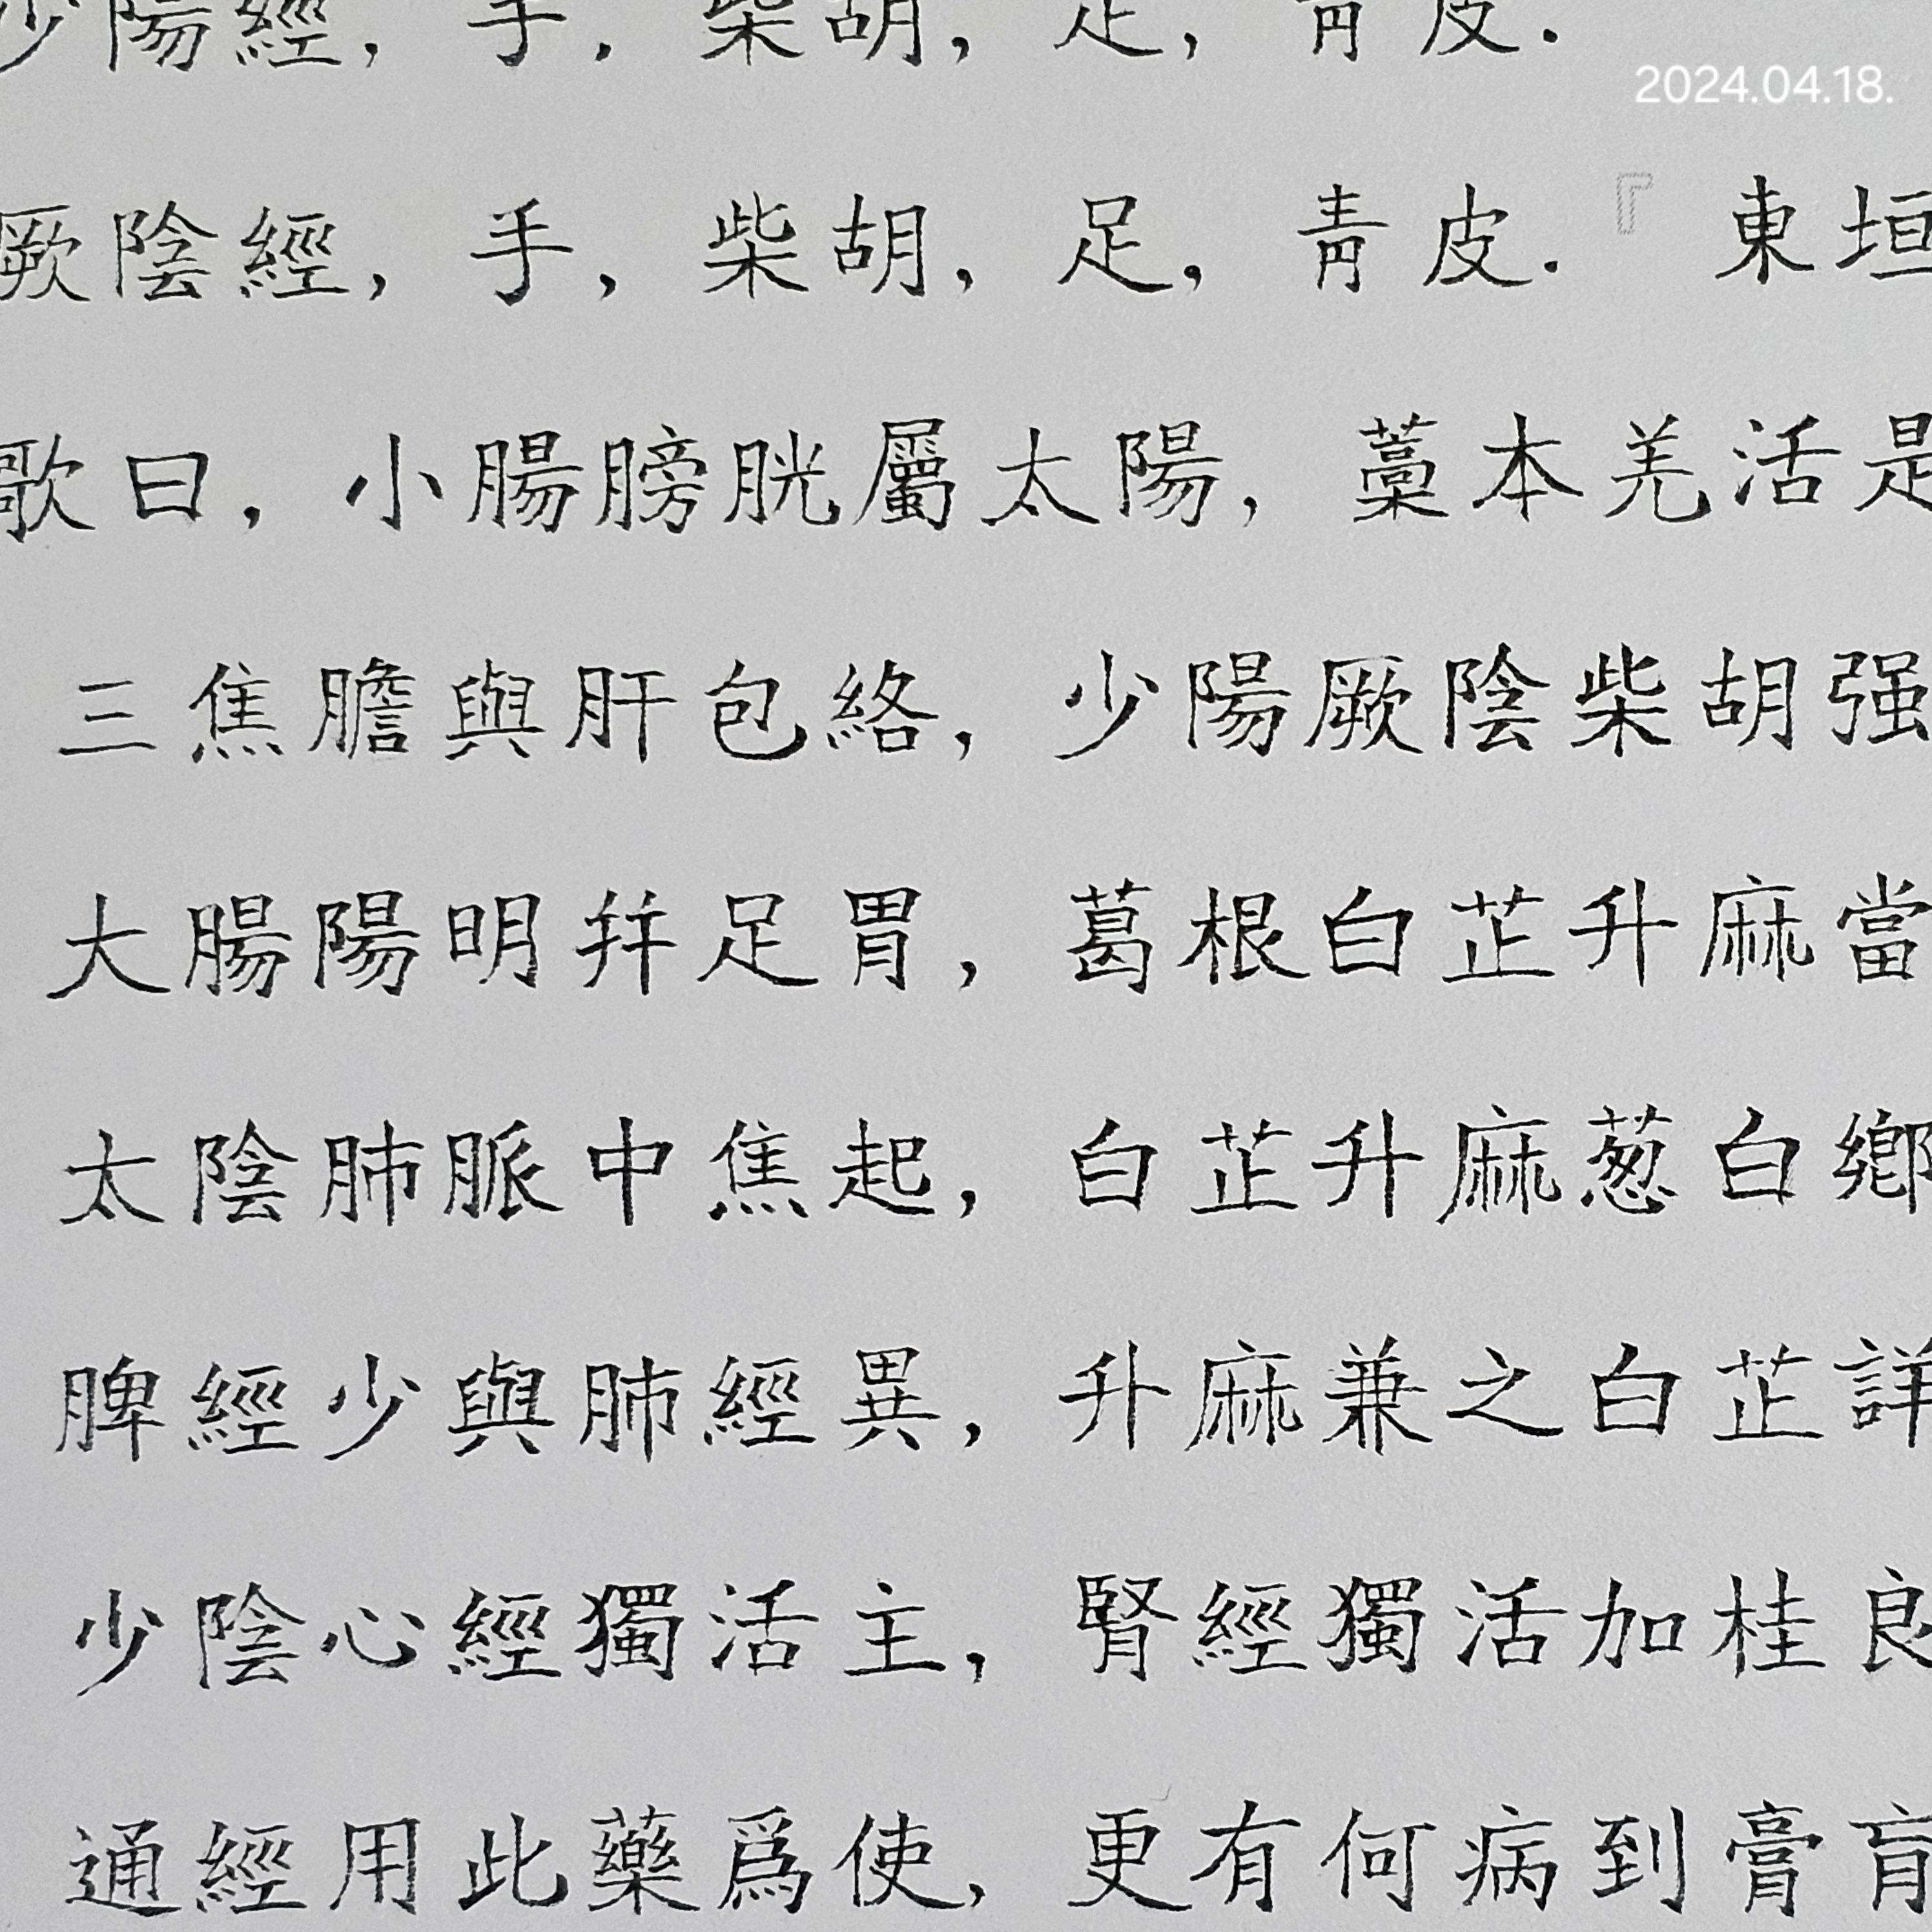 少陽經, 手, 柴胡, 足, 靑皮.
2024.04.18.
厥陰經, 手, 柴胡, 足, 靑皮.『東垣
歌曰, 小腸膀胱屬太陽, 藁本羌活是
三焦膽與肝包絡, 少陽厥陰柴胡强
大腸陽明幷足胃, 葛根白芷升麻當
太陰肺脈中焦起, 白芷升麻葱白鄕
脾經少與肺經異, 升麻兼之白芷詳
少陰心經獨活主, 腎經獨活加桂良
通經用此藥爲使, 更有何病到膏肓